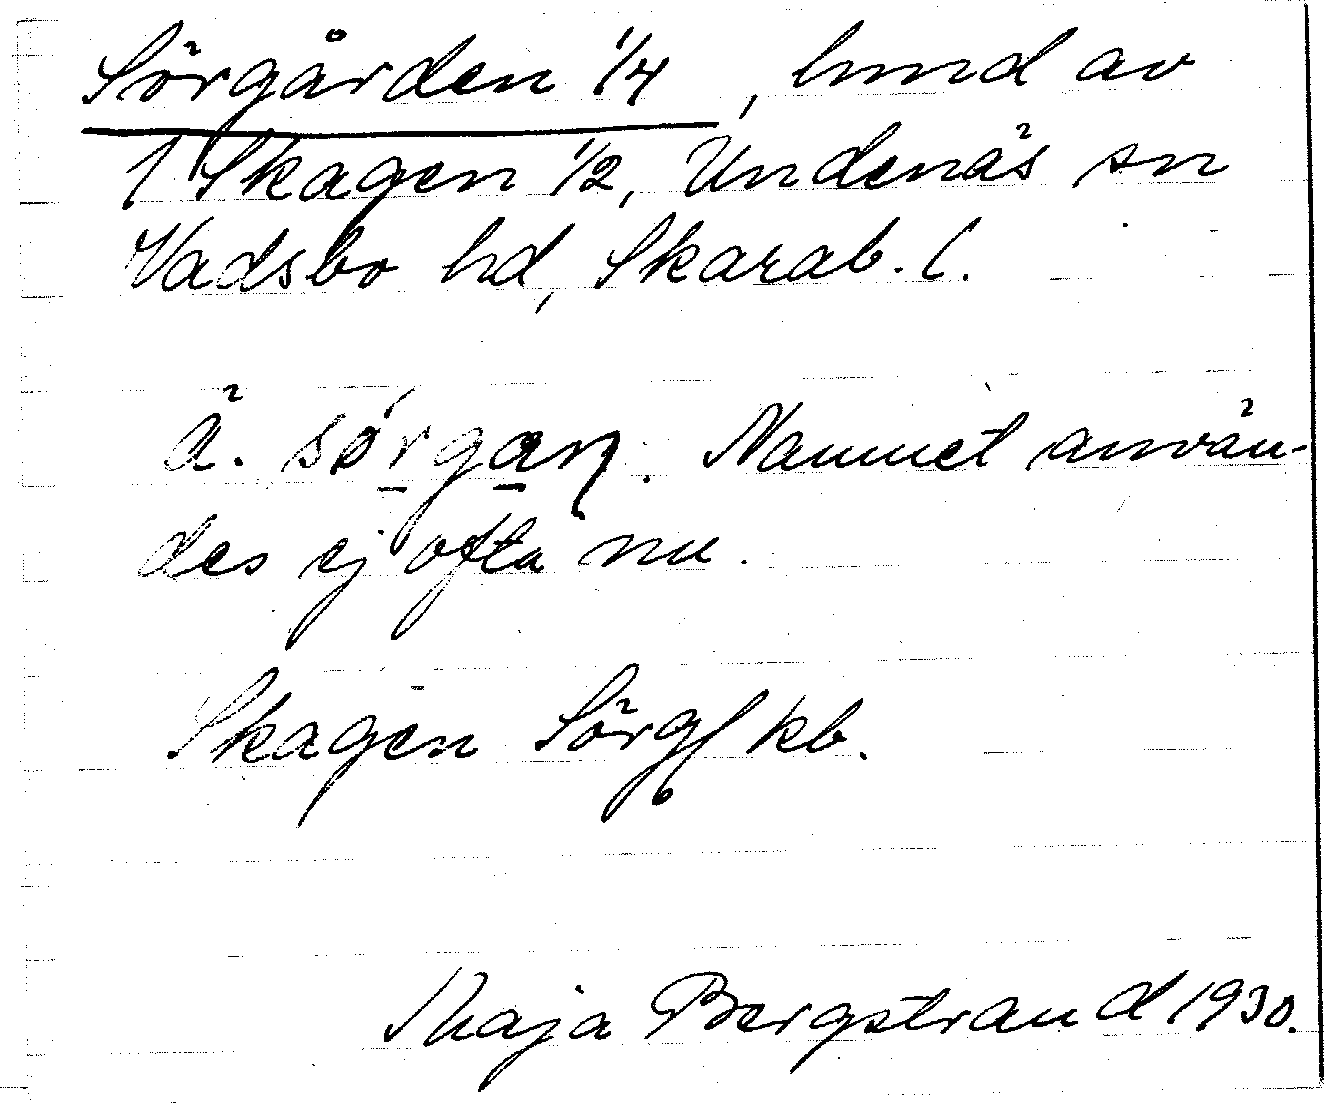 Sörgården 1/4, hmd av
1 Skagen 1/2, Undenäs sn
Vadsbo hd, Skarab. l.
ä. sørgaɳ. Namnet använ-
des ej ofta nu.
Skagen Sörg kb.
Maja Bergstrand 1930.